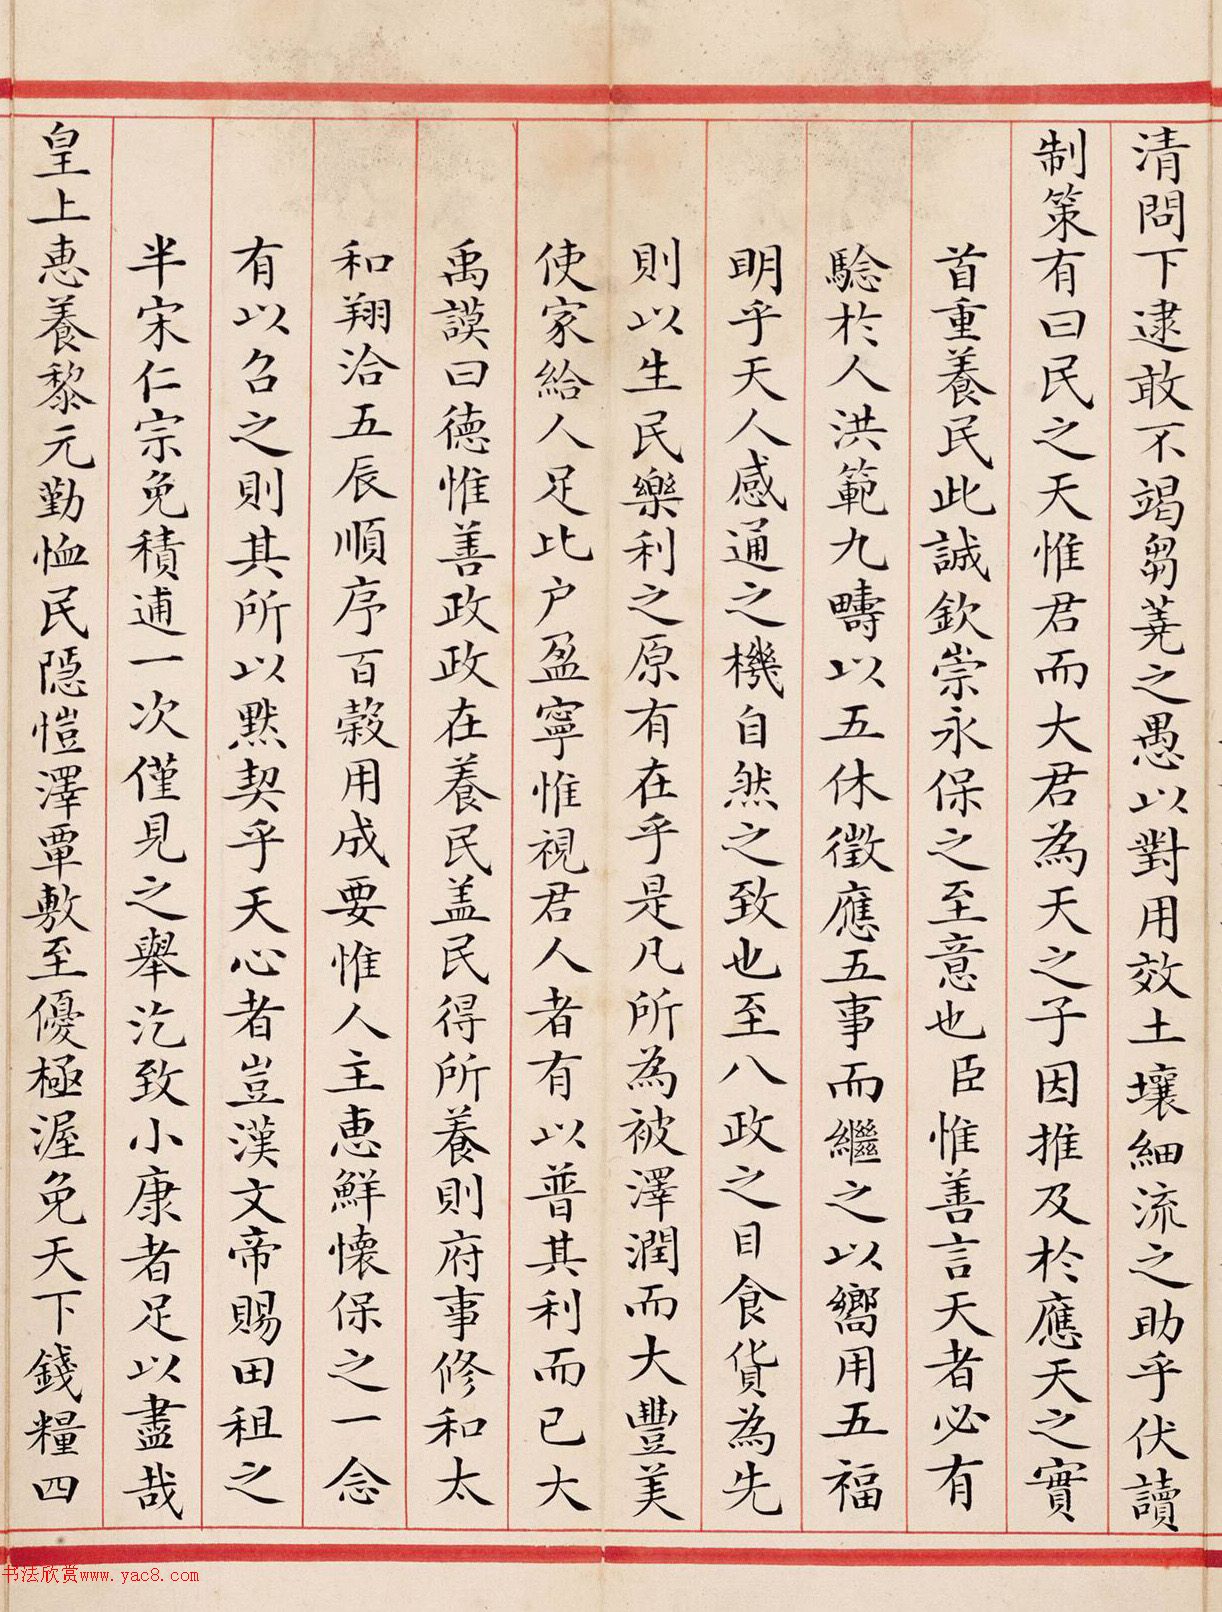 清問下逮敢不竭芻蕘之愚以對用效土壤細流之助乎伏讀
制策有曰民之天惟君而大君為天之子因推及於應天之實
首重養民此誠欽崇永保之至意也臣惟善言天者必有
驗於人洪範九疇以五休徵應五事而繼之以嚮用五福
明乎天人感通之機自然之致也至八政之目食貨為先
則以生民樂利之原有在乎是凡所為被澤潤而大豐美
使家給人足比户盈寧惟視君人者有以普其利而已大
禹謨曰德惟善政政在養民盖民得所養則府事修和太
和翔洽五辰順序百穀用成要惟人主惠鮮懷保之一念
有以召之則其所以默契乎天心者豈漢文帝賜田租之
半宋仁宗免積逋一次僅見之舉汔致小康者足以盡哉
皇上惠養黎元勤恤民隱愷澤覃敷至優極渥免天下錢糧四
书法欣赏www.yac8.com